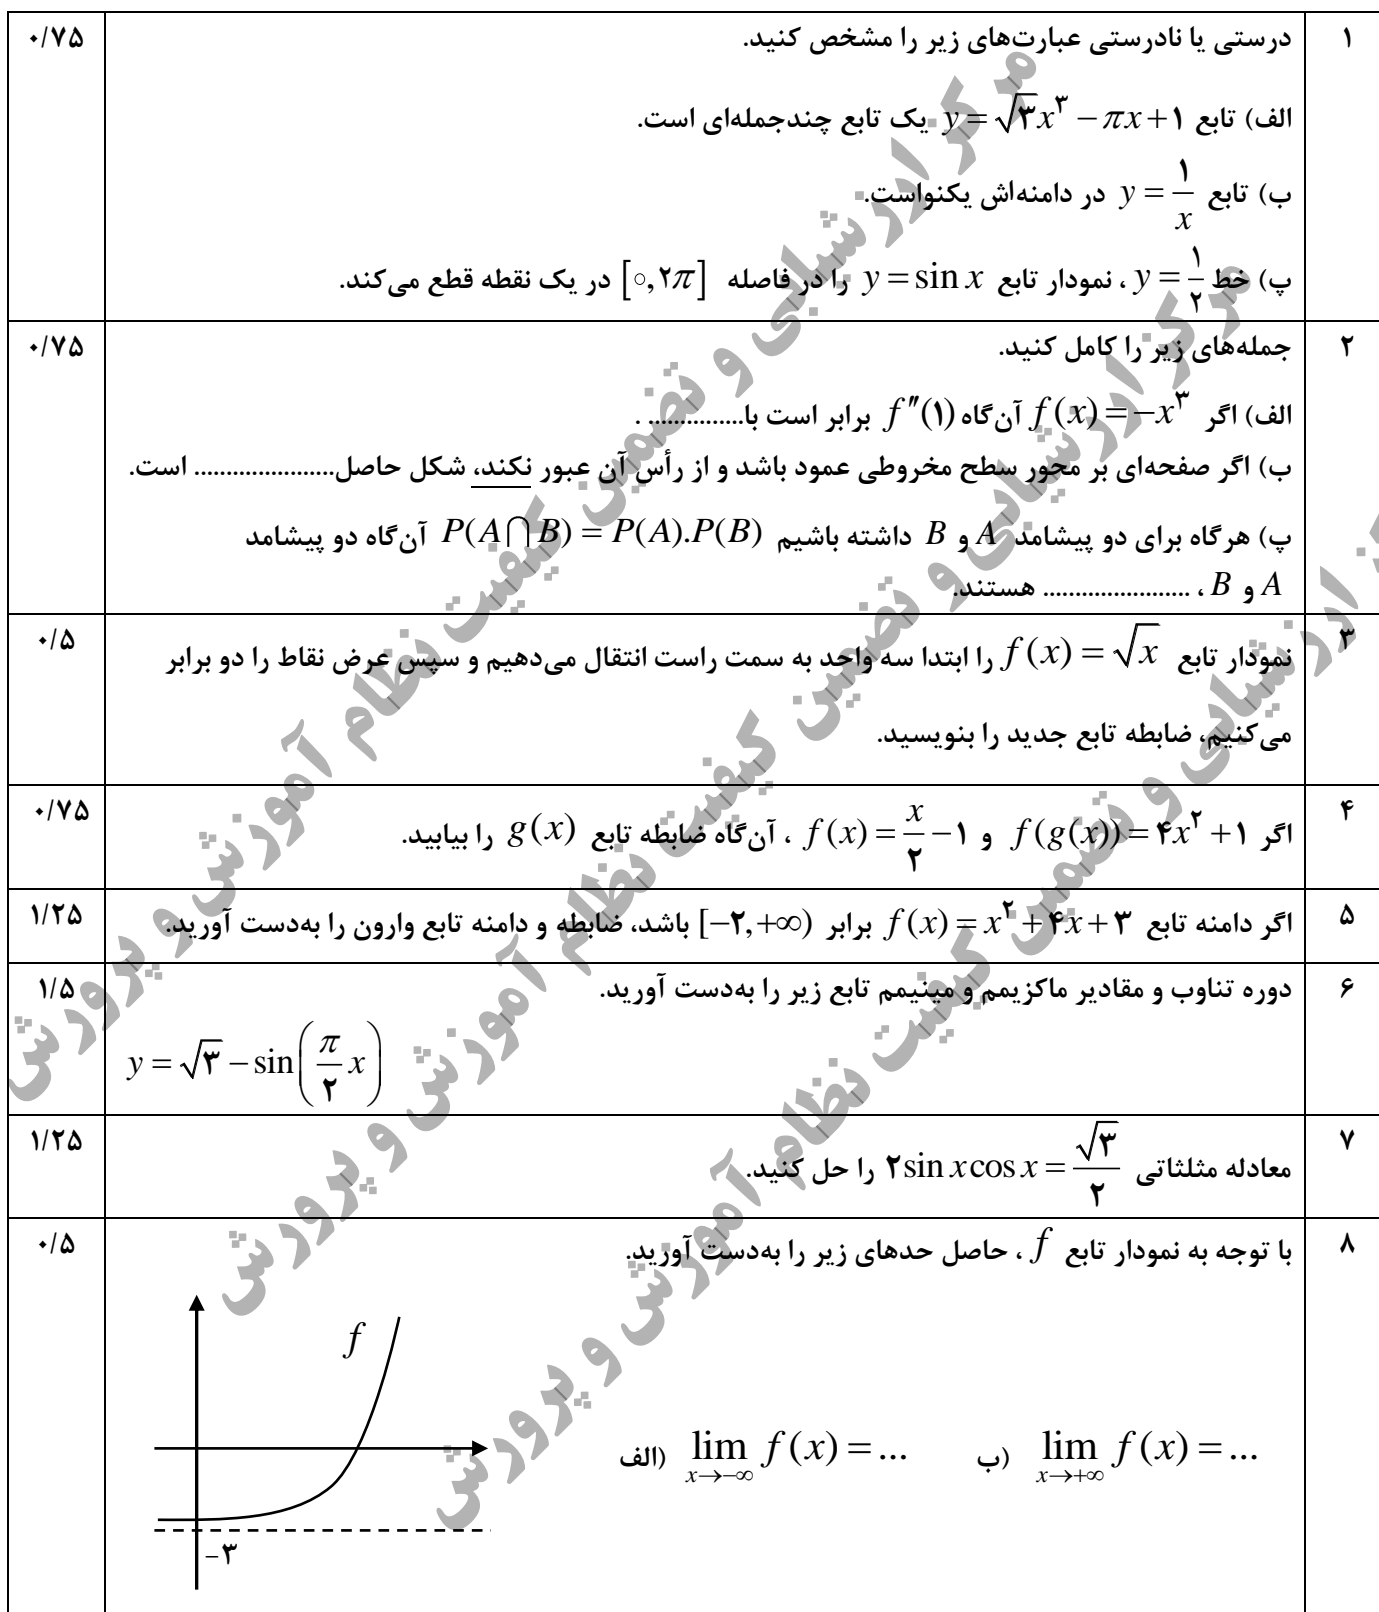 ۱ درستی یا نادرستی عبارت‌های زیر را مشخص کنید. ۰/۷۵
الف) تابع y = √۳x^۳ − πx + ۱ یک تابع چندجمله‌ای است.
ب) تابع y = ۱/x در دامنه‌اش یکنواست.
پ) خط y = ۱/۲ ، نمودار تابع y = sin x را در فاصله [۰, ۲π] در یک نقطه قطع می‌کند.
۲ جمله‌های زیر را کامل کنید. ۰/۷۵
الف) اگر f(x) = −x^۳ آن‌گاه f″(۱) برابر است با............... .
ب) اگر صفحه‌ای بر محور سطح مخروطی عمود باشد و از رأس آن عبور نکند، شکل حاصل...................... است.
پ) هرگاه برای دو پیشامد A و B داشته باشیم P(A⋂B) = P(A).P(B) آن‌گاه دو پیشامد
A و B ، ....................... هستند.
۳ نمودار تابع f(x) = √x را ابتدا سه واحد به سمت راست انتقال می‌دهیم و سپس عرض نقاط را دو برابر ۰/۵
می‌کنیم، ضابطه تابع جدید را بنویسید.
۴ اگر f(g(x)) = ۴x^۲ + ۱ و f(x) = x/۲ − ۱ ، آن‌گاه ضابطه تابع g(x) را بیابید. ۰/۷۵
۵ اگر دامنه تابع f(x) = x^۲ + ۴x + ۳ برابر [−۲, +∞) باشد، ضابطه و دامنه تابع وارون را به‌دست آورید. ۱/۲۵
۶ دوره تناوب و مقادیر ماکزیمم و مینیمم تابع زیر را به‌دست آورید. ۱/۵
y = √۳ − sin(π/۲ x)
۷ معادله مثلثاتی ۲ sin x cos x = √۳/۲ را حل کنید. ۱/۲۵
۸ با توجه به نمودار تابع f ، حاصل حدهای زیر را به‌دست آورید. ۰/۵
f
الف) lim x→−∞ f(x) = ... ب) lim x→+∞ f(x) = ...
−۳
مرکز ارزشیابی و تضمین کیفیت نظام آموزش و پرورش
مرکز ارزشیابی و تضمین کیفیت نظام آموزش و پرورش
مرکز ارزشیابی و تضمین کیفیت نظام آموزش و پرورش